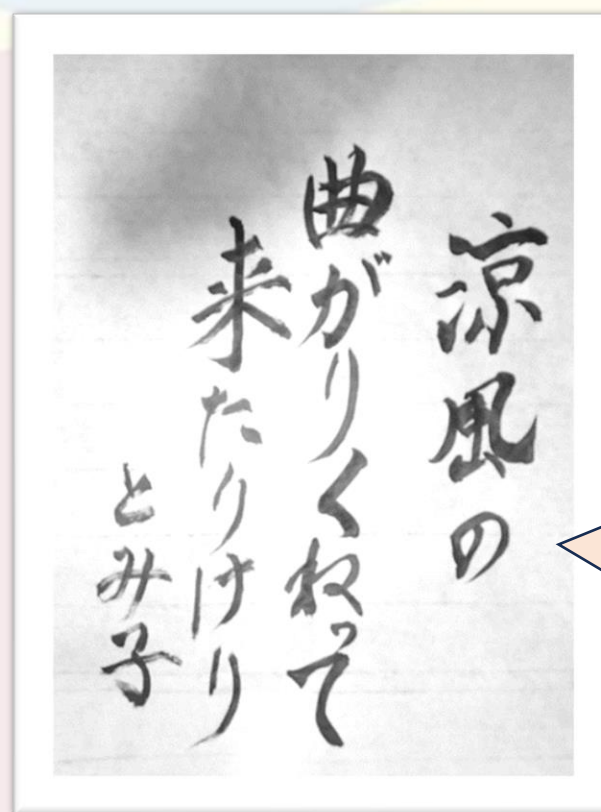 涼風の
曲がりくねって
来たりけり
とみ子